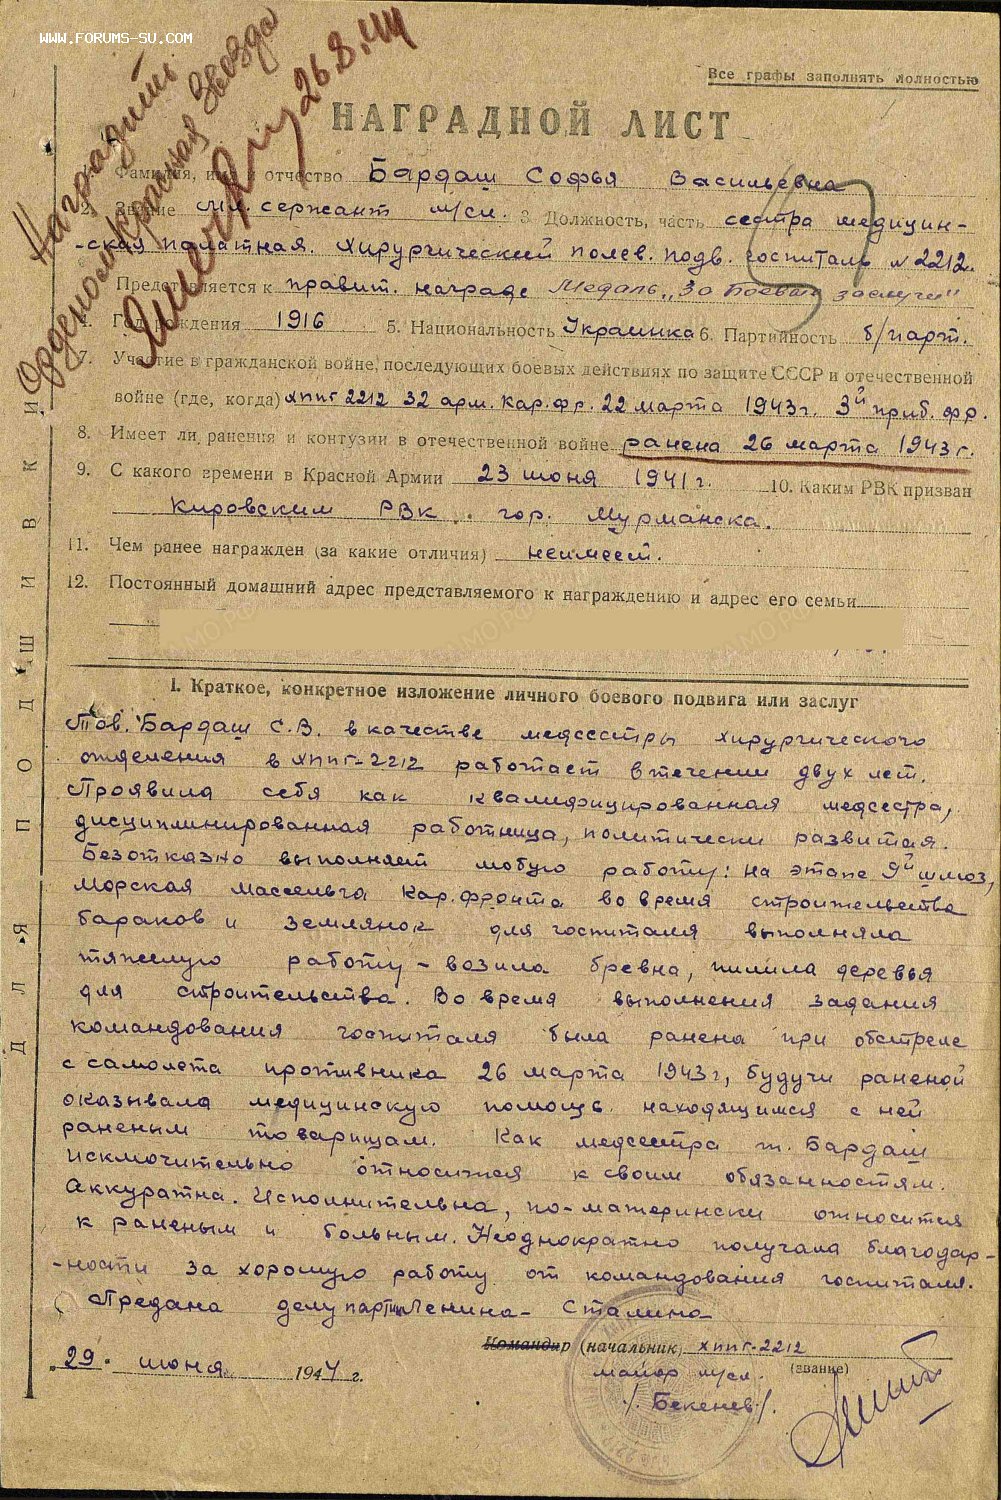 WWW.FORUMS-SU.COM
Наградить
Орденом Красная Звезда
26.8.44
Все графы заполнять полностью
НАГРАДНОЙ ЛИСТ
Фамилия, имя и отчество Бардаш Софья Васильевна
2. Звание мл. сержант м/сл. 3. Должность, часть сестра медицин-
-ская палатная. Хирургический полев. подв. госпиталь №2212.
Представляется к правит. награде Медаль „За боевые заслуги"
4. Год рождения 1916 5. Национальность Украинка 6. Партийность б/парт.
7. Участие в гражданской войне, последующих боевых действиях по защите СССР и отечественной
войне (где, когда) хппг 2212 32 арм. Кар.фр. 22 марта 1943г. 3й приб. фр.
8. Имеет ли ранения и контузии в отечественной войне ранена 26 марта 1943г.
9. С какого времени в Красной Армии 23 июня 1941г. 10. Каким РВК призван
Кировским РВК гор. Мурманска.
11. Чем ранее награжден (за какие отличия) неимеет.
12. Постоянный домашний адрес представляемого к награждению и адрес его семьи
ДЛЯ ПОДШИВКИ
I. Краткое, конкретное изложение личного боевого подвига или заслуг
Тов. Бардаш С.В. в качестве медсестры хирургического
отделения в хппг-2212 работает в течении двух лет.
Проявила себя как квалифицированная медсестра,
дисциплинированная работница, политически развитая.
Безотказно выполняет любую работу: на этапе 9й шлюз,
Морская массельга Кар.фронта во время строительства
бараков и землянок для госпиталя выполняла
тяжелую работу – возила бревна, пилила деревья
для строительства. Во время выполнения задания
командования госпиталя была ранена при обстреле
с самолета противника 26 марта 1943г, будучи раненой
оказывала медицинскую помощь находящимся с ней
раненым товарищам. Как медсестра т. Бардаш
исключительно относится к своим обязанностям.
Аккуратна. Исполнительна, по-матерински относится
к раненым и больным. Неоднократно получала благодар-
-ности за хорошую работу от командования госпиталя.
Предана делу партии Ленина – Сталина
Командир (начальник) хппг-2212
29. июня 1944 г. майор м/сл. (звание)
/Бекенев/.